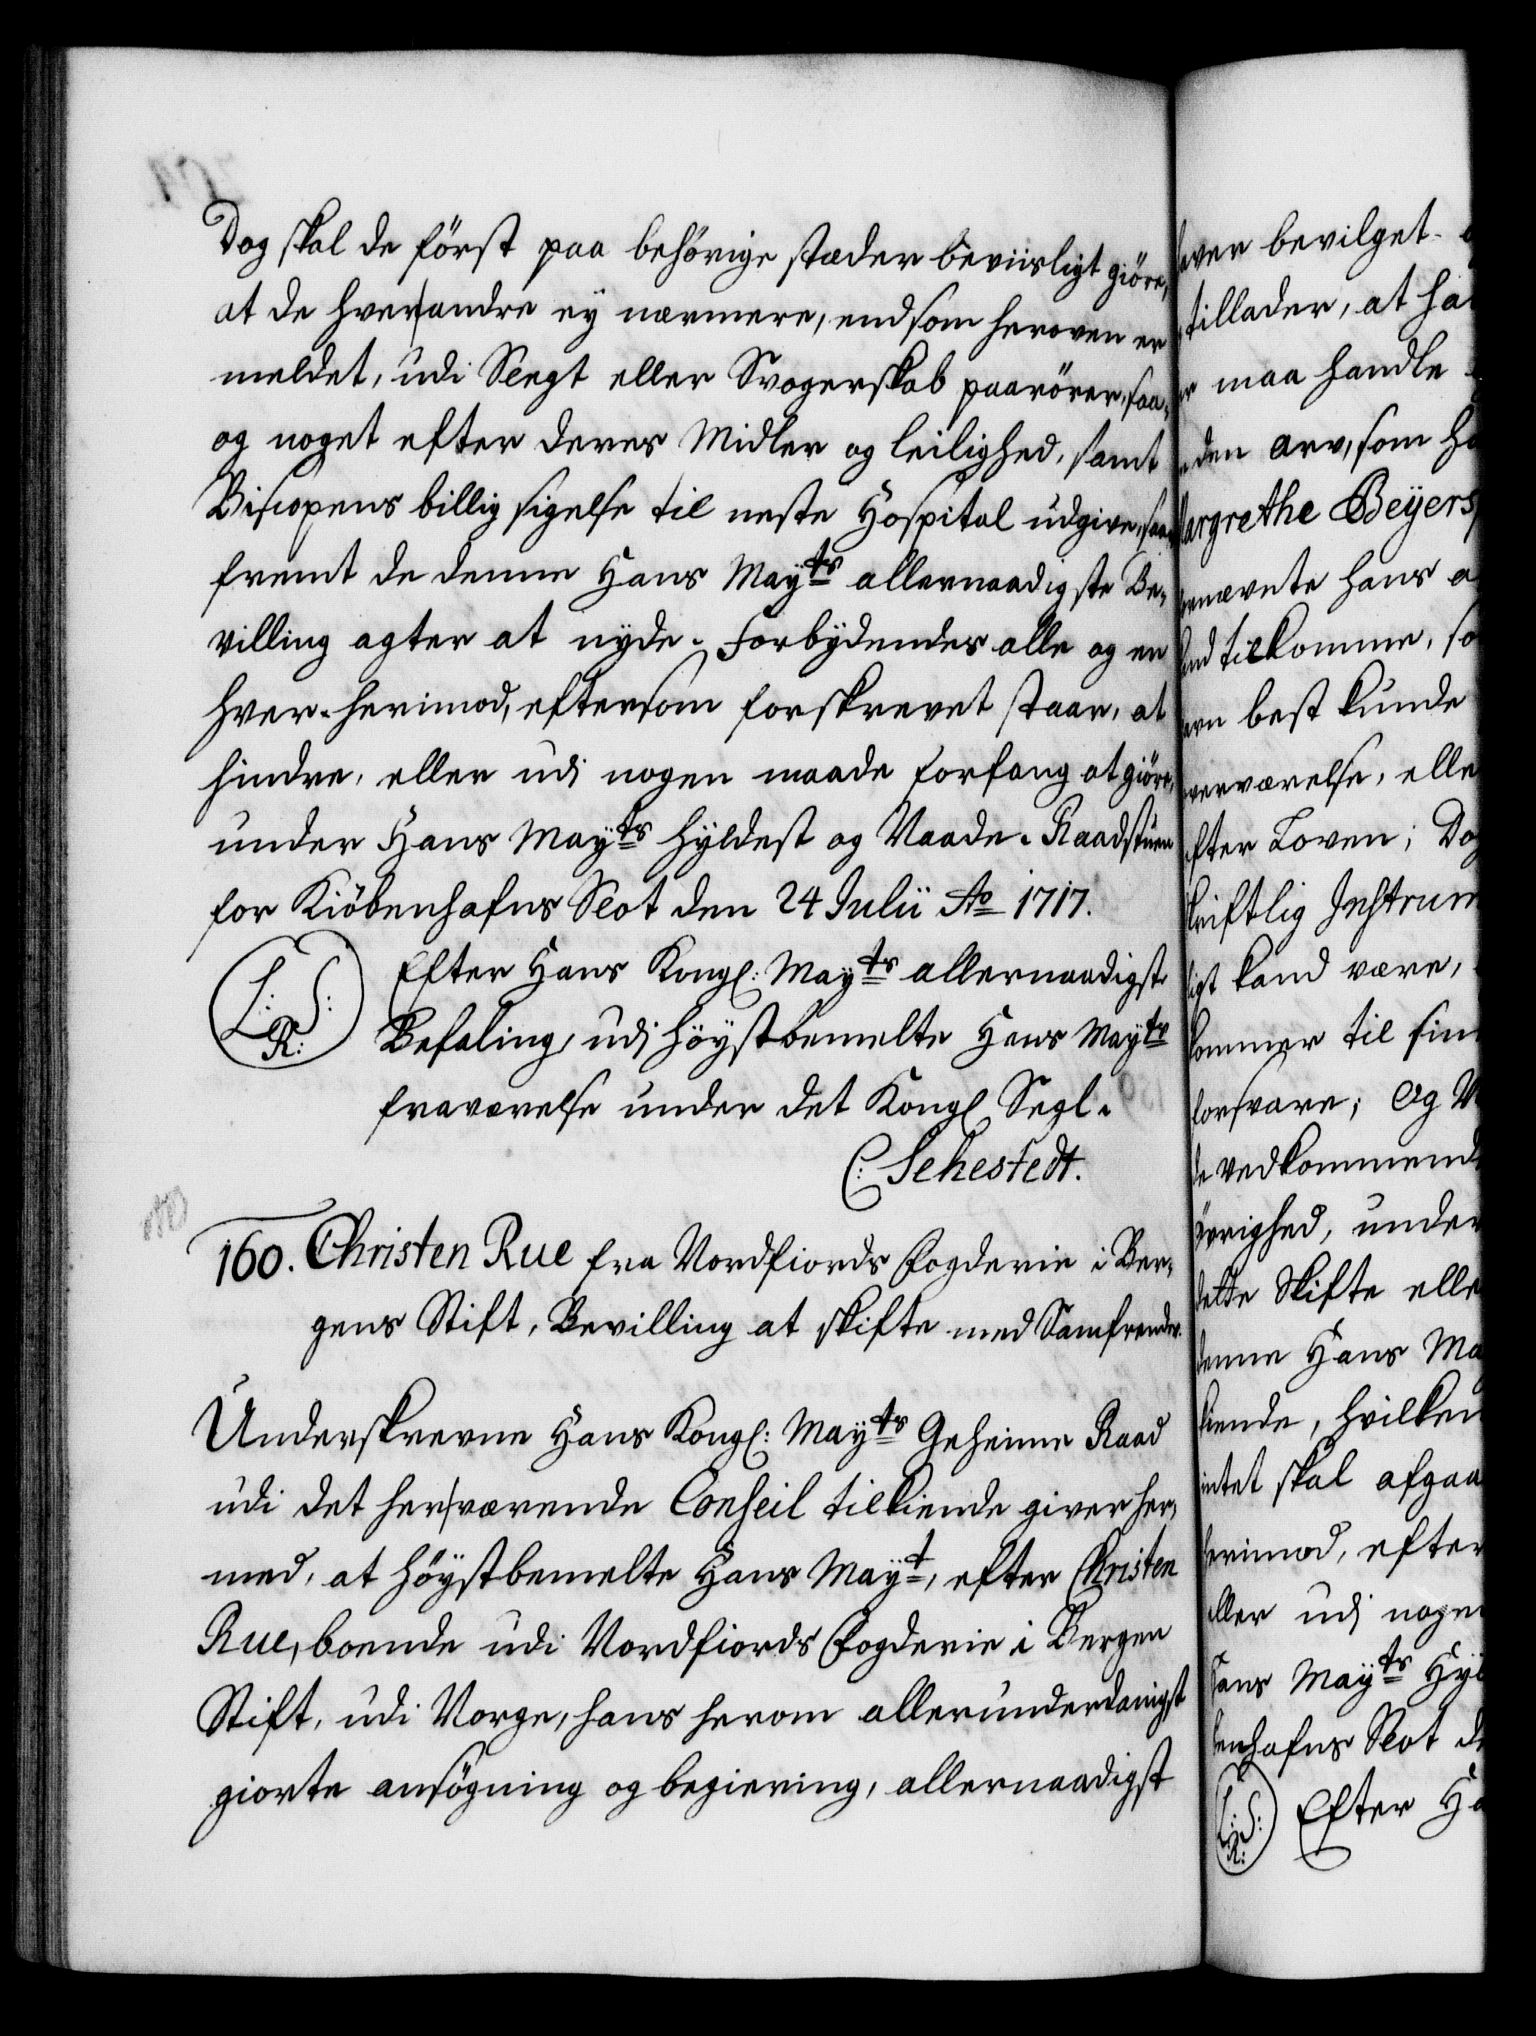 Dog skal de först paa behörige stæder beviisligt giöre,
at de hver andre ey nærmere, end som heroven er
meldet, udi Slegt eller Svogerskab paarörer, saa-
og noget efter deres Midler og leilighed, samt
Biscopens billig sigelse til neste Hospital udgive, saa-
fremt de denne Hans Mayts allernaadigste Be-
villing agter at nyde. Forbydendes alle og en
hver herimod, eftersom forskrevet staar, at
hindre, eller udi nogen maade forfang at giöre,
under Hans Mayts Hyldest og Naade. Raadstuen
for Kiöbenhafns Slot den 24 Julii Ao 1717.
L: S:
R:
Efter Hans Kongl: Mayts allernaadigste
Befaling, udi Höystbemelte Hans Mayts
fraværelse under det Kongl Segl.
C: Sehestedt.
160. Christen Rue fra Nordfiords Fogderie i Ber-
gens Stift, Bevilling at skifte med Samfrender.
Underskrevne Hans Kongl: Mayts Geheime Raad
udi det her værende Conseil tilkiende giver her-
med, at Höystbemelte Hans Mayt, efter Christen
Rue, boende udi Nordfiords Fogderie i Bergen
Stift, udi Norge, hans herom allerunderdanigst
giorte ansögning og begiering, allernaadigst
haver bevilget
tillader, at ha
maa handle
den arv, som ha
Margrethe Beyers
bemævnte hans
tilkomme, so
best kunde
overværelse, elle
efter Loven; Dog
skriftlig Instrum
ligt kand være,
kommer til sin
forsvare; Og
de vedkommende
övrighed, under
dette Skifte elle
denne Hans Ma
kiende, hvilken
intet skal afgaa
herimod, efter
eller udi nogen
Hans Mayts Hyl
benhafns Slot de
L: S:
R:
Efter Ha